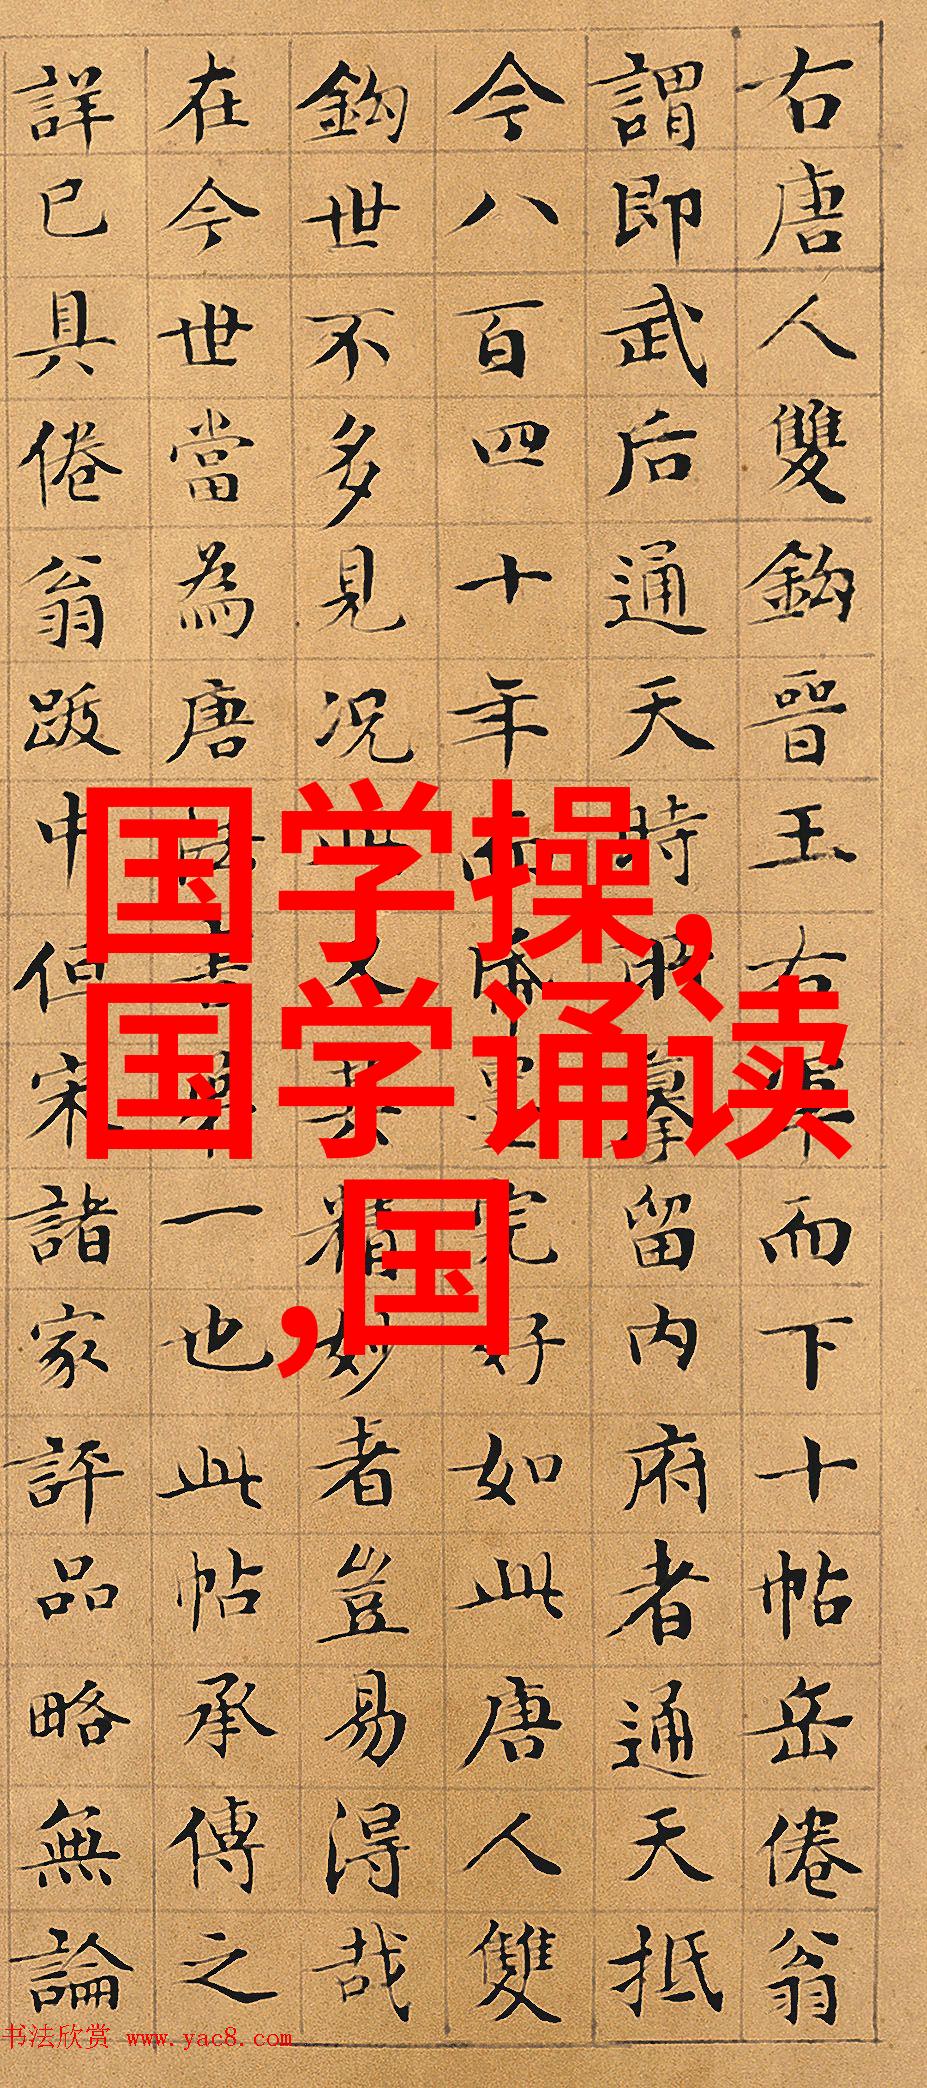 右唐人雙鈎晉王右軍而下十帖岳倦翁
謂即武后通天時所摹留內府者通天抵
今八百四十年而紙墨完好如此唐人雙
鈎世不多見況此又其精妙者豈易得哉
在今世當為唐法書第一也此帖承傳之
詳已具倦翁跋中但宋諸家評品略無論
国学操,
国学诵读
,国
书法欣赏 www.yac8.com